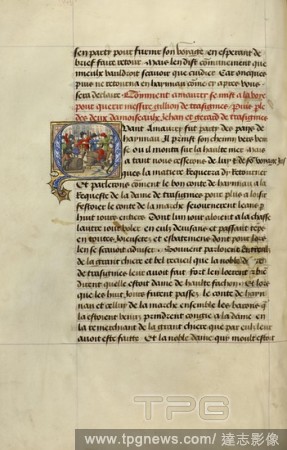 sen partir pour furnir son voyage en esperant de
brief faire retour. Mais len dist communement que
mieulx vauldroit scavoir que cuidier Car oncques
puis ne retourna en haynnau come cy apres vous
sera declaire. Comment amaury se mist a la voye
pour querir messire gillion de trasignies Puis ple
des deux damoiseaulx Jehan et gerard de trasignies
Quant Amaury fut party des pays de
haynnau Il prinst son chemin vers
ou il monta sur la haulte mer Mais
a tant nous cesserons de luy et de ses voyages Jus
ques la matiere requerra dy retourner
Et parlerons coment le bon conte de haynnau a la
requeste de la dame de trasignies pour plus a loisir
festoier le conte de la marche seiournerent leans
huit jours entiers Dont lun jour aloient a la chasse
lautre jour voler en eulx devisant et passant teps
en toutes joieusetez et esbatemens dont pour lors
len se scavoit adviser Souvent parloient
de la grant chiere et bel recueil que la noble da
de trasignies leur avoit fait fort len loerent
dirent quelle estoit dame de haulte facon Et lors
que les huit jours furent passez le conte de hayn
nau et cellui de la marche ensemble les barons
q la estoient venus prindrent congie a la dame en
la remerchiant de la grant chiere que par eulx leur
avoit este faitte Et la noble dame quy moult estoit
TPG
www.tpgnews.com/達志影像